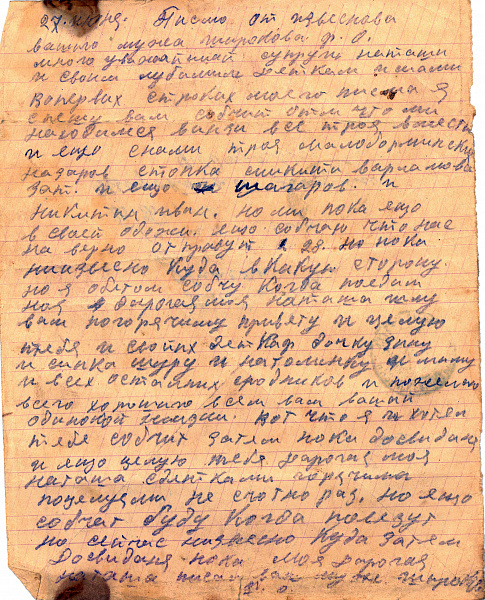 27 июня. Писмо от извеснова
вашего мужа широкова ф. о.
много уважаимай супруги наташи
и своим любимым деткам и мами
вопервах строках моего писма я
спешу вам собчит о том что ми
находимся все троя вместе
и ещо снами троя малоборминских
назаров стопка никита варламов
зат. и ещо шагаров. и
никитин иван. но ми пока ещо
в своей одёжи. ещо собчаю что нас
на верно отправут 28. но пока
низвесно куда в какую сторону.
но я обетом собчу когда поедим
ноя дорогая моя наташа шлю
вам погорячиму привету и целую
тебя и своих деткаф дочку зину
и синка шуру и маму
и всех осталних сродников и пожелаю
всего хорошего всем вам вашей
одинокой жизни. вот что я и хотел
тебе собчит затем пока досвиданя
и ещо целую тебя дорогая моя
наташа сдетками горячима
поцелуями не счотно раз. но ещо
собчат буду когда повезут
но сейчас низвесно куда затем
Досвиданя пока моя дорогая
наташа писал ваш муж широков
ф. о.